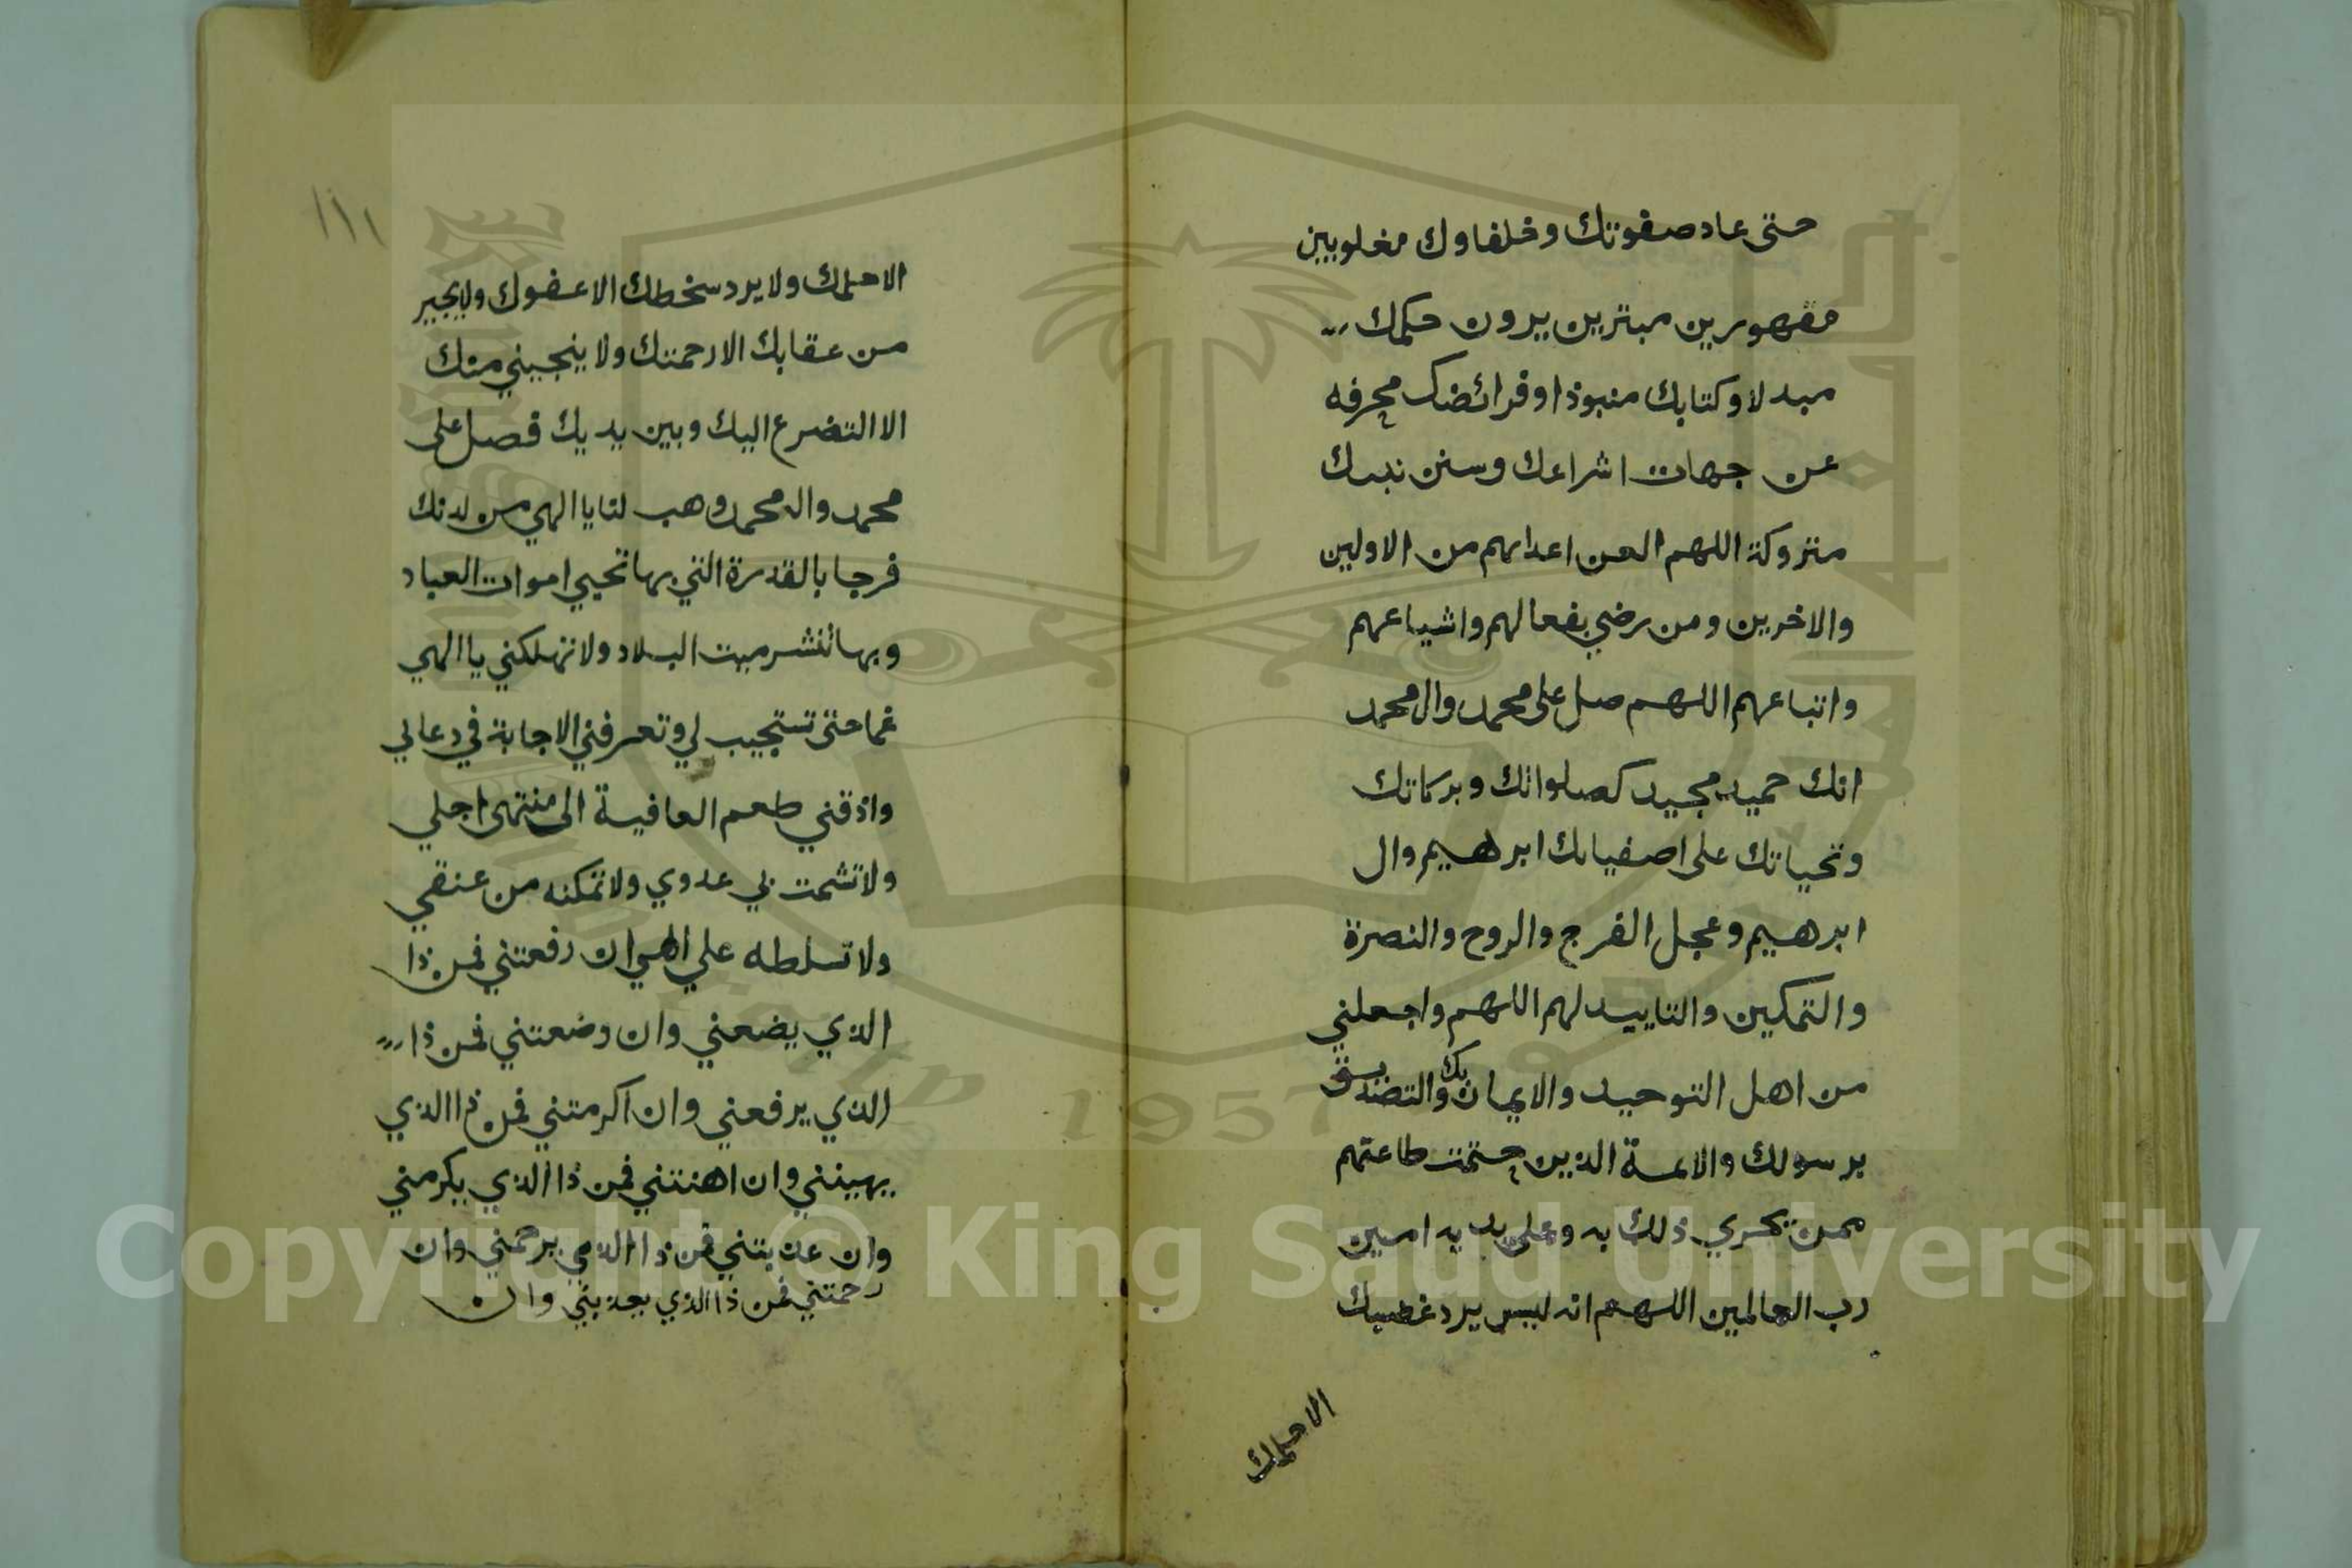 حتى عاد صفوتك وخلفاوك مغلوبين
مقهورين مبتزين يرون حكمك
مبدلا وكتابك منبوذا وفرائضك محرفه
عن جهات اشراعك وسنن نبيك
متروكة اللهم العن اعدايهم من الاولين
والاخرين ومن رضي بفعالهم واشياعهم
واتباعهم اللهم صل على محمد وال محمد
انك حميد مجيد كصلواتك وبركاتك
وتحياتك على اصفيائك ابرهيم وال
ابرهيم وعجل الفرج والروح والنصرة
والتمكين والتاييد لهم اللهم واجعلني
من اهل التوحيد والايمان بك والتصديق
برسولك والائمة الذين حتمت طاعتهم
ممن يجري ذلك به وعلى يديه امين
رب العالمين اللهم انه ليس يرد غضبك
الا حلمك
١١١
الا حلمك ولا يرد سخطك الا عفوك ولا يجير
من عقابك الا رحمتك ولا ينجيني منك
الا التضرع اليك وبين يديك فصل على
محمد وال محمد وهب لنا يا الهي من لدنك
فرجا بالقدرة التي بها تحيي اموات العباد
وبها تنشر ميت البلاد ولا تهلكني يا الهي
غما حتى تستجيب لي وتعرفني الاجابة في دعاي
واذقني طعم العافية الى منتهى اجلي
ولا تشمت بي عدوي ولا تمكنه من عنقي
ولا تسلطه علي الهي ان رفعتني فمن ذا
الذي يضعني وان وضعتني فمن ذا
الذي يرفعني وان اكرمتني فمن ذا الذي
يهينني وان اهنتني فمن ذا الذي يكرمني
وان عذبتني فمن ذا الذي يرحمني وان
رحمتني فمن ذا الذي يعذبني وان
Copyright © King Saud University
1957